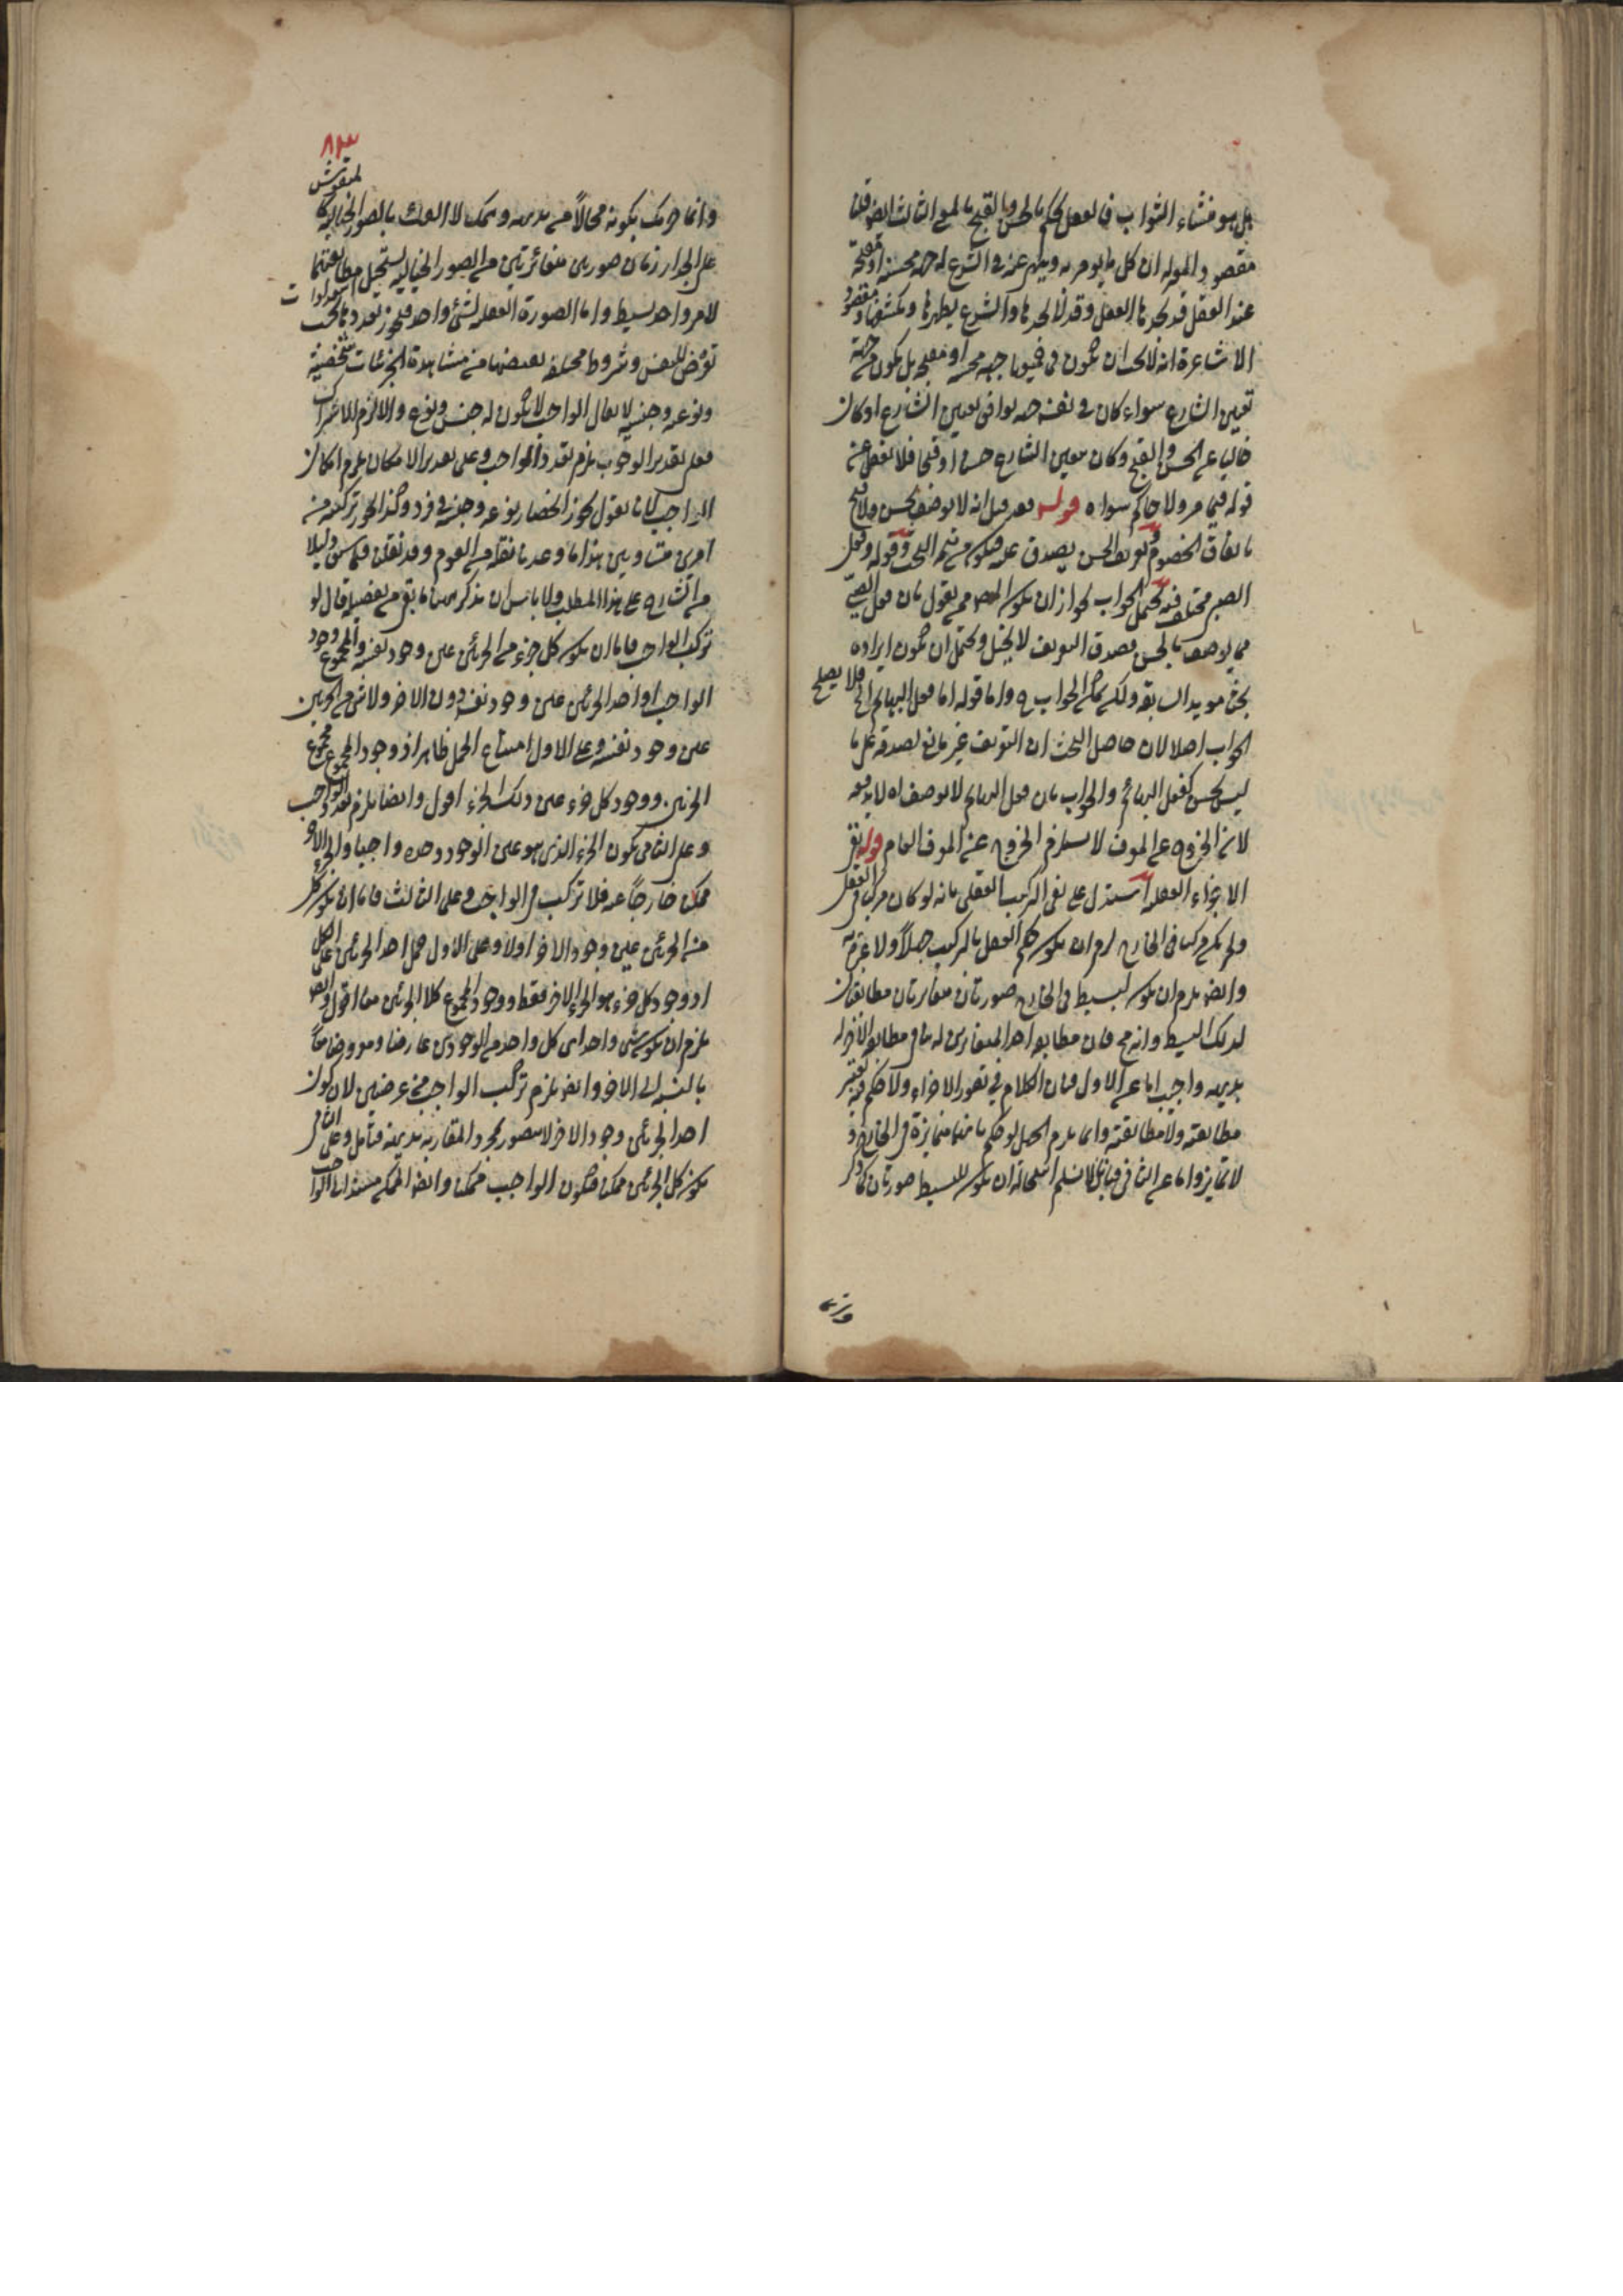 بل هو منشاء الثواب فالعقل يحكم بالحسن وبالقبح بالمعنى الثالث ايضا فان
مقصود المعتزلة ان كل ما يؤمر به وينهى عنه في الشرع له جهة محسنة او مقبحة
عند العقل قد يجدها العقل وقد لا يجدها والشرع يظهرها ويكشفها ومقصود
الاشاعرة انه لا يجب ان تكون فيهما جهة محسنة او مقبحة بل يكون من جهة
تعيين الشارع سواء كان في نفسه جهة يوافق تعيين الشارع او كان
خاليا عن الحسن والقبح وكان تعيين الشارع حسنا او قبحا فلا تغفل عن
قوله فيما مر ولا حاكم سواه قوله فعل قيل انه لا يوصف بحسن ولا قبح
باتفاق الخصوم وتعريف الحسن يصدق عليه فيكون من تتمة البحث وقوله وفعل
الصبي مختلف فيه يحتمل الجواب لجواز ان يكون المصنف ممن يقول بان فعل الصبي
مما يوصف بالحسن فصدق التعريف لا يخل ويحتمل ان تكون ايراده
بحثا مؤيدا لسابقه ولكن يمكن الجواب واما قوله اما فعل البهائم الخ فلا يصلح
الجواب اصلا لان حاصل البحث ان التعريف غير مانع لصدقه على ما
ليس بحسن كفعل البهائم والجواب بان فعل البهائم لا يوصف اه لا يدفعه
لان الخروج عن المعرف لا يستلزم الخروج عن المعرف العام قوله نفي
الاجزاء العقلية استدل على نفي التركيب العقلي بانه لو كان مركبا في العقل
ولم يكن مركبا في الخارج لزم ان يكون حكم العقل بالتركيب جهلا ولا عبرة به
وايضا يلزم ان يكون لبسيط في الخارج صورتان متغايرتان مطابقتان
لذلك البسيط وانه مح فان مطابقة احد المتغايرين له ينافي مطابقة الآخر له
بديهة واجيب اما عن الاول فبان الكلام في تصور الاجزاء ولا حكم فيه يعتبر
مطابقته ولا مطابقته وانما يلزم الجهل لو حكم بانها متمايزة في الخارج و
لا تمايز واما عن الثاني فبانا لا نسلم استحالة ان يكون للبسيط صورتان كما ذكر
وانما
٨٣
وانما حرمك بكونه محالا من بديهة وهمك لا العقل بالصور الخيالية كالمنقوش
على الجدار زمان صورتين متغائرتين من الصور الخيالية يستحيل مطابقتهما
لامر واحد بسيط واما الصورة العقلية لشيئ واحد فيجوز تعددها بحسب استعدادات
تعرض للنفس وشروط مختلفة بعضها من مشاهدة الجزئيات شخصية
ونوعية وجنسية لا يقال الواجب لا يكون له جنس ونوع والا لزم الاشتراك
فعلى تقدير الوجوب يلزم تعدد الواجب وعلى تقدير الامكان يلزم امكان
الواجب لانا نقول يجوز انحصار نوعه وجنسه في فرد وكذا يجوز تركبه من
امرين متساويين هذا ما وعدنا نقله من القوم وقد نقلنا فيما سبق دليلا
من الشارح على هذا المطلب ولا باس ان نذكر ههنا ما بقي من تفصيله قال لو
تركب الواجب فاما ان يكون كل جزء من الجزئين عين وجود نفسه والمجموع وجود
الواجب او احد الجزئين عين وجود نفسه دون الاخر ولا شئ من الجزئين
عين وجود نفسه وعلى الاول امتناع الحمل ظاهر اذ وجود المجموع مجموع
الجزئين ووجود كل جزء عين ذلك الجزء اقول وايضا يلزم تعدد الواجب
وعلى الثاني يكون الجزء الذي هو عين الوجود وحده واجبا والجزء الاخر
ممكن خارجا عنه فلا تركيب في الواجب وعلى الثالث فاما ان يكون كل
من الجزئين عين وجود الاخر اولا وعلى الاول حمل احد الجزئين على الكل
اذ وجود كل جزء هو الجزء الاخر فقط ووجود المجموع كلا الجزئين معا اقول وايضا
يلزم ان يكون شئ واحد اى كل واحد من الوجودين عارضا ومعروضا معا
بالنسبة الى الاخر وايضا يلزم تركب الواجب من عرضين لان كون
احد الجزئين وجود الاخر لا يتصور بمجرد المقارنة بديهة فتأمل وعلى الثاني
يكون كل الجزئين ممكنا فيكون الواجب ممكنا وايضا الممكن مستند الى الواجب